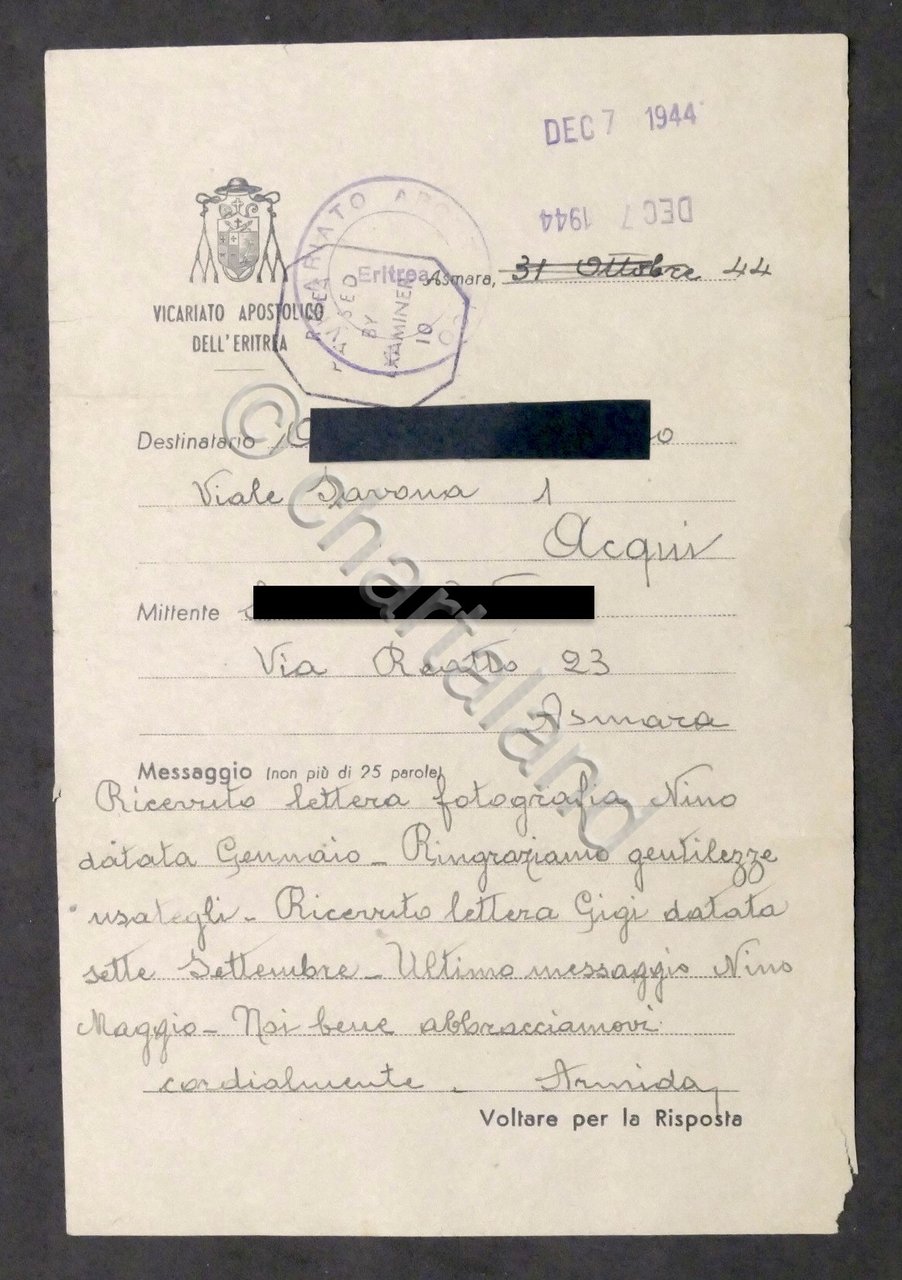 DEC 7 1944
DEC 7 1944
VICARIATO APOSTOLICO
Eritrea
Asmara, 31 Ottobre 44
PASSED
BY
EXAMINER
10
VICARIATO APOSTOLICO
DELL'ERITREA
Destinatario
Viale Savona 1
Acqui
Mittente
Via Reatto 23
Asmara
Messaggio (non più di 25 parole)
Ricevuto lettera fotografia Nino
datata Gennaio - Ringraziamo gentilezze
usategli - Ricevuto lettera Gigi datata
sette Settembre - Ultimo messaggio Nino
Maggio - Noi bene abbracciamovi
cordialmente - Armida
Voltare per la Risposta
© chartaland